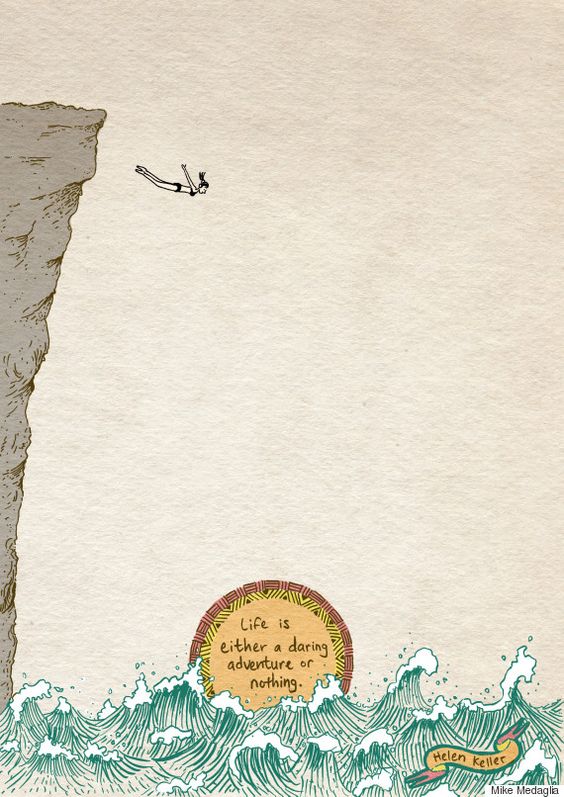 Life is
either a daring
adventure or
nothing.
Helen Keller
Mike Medaglia